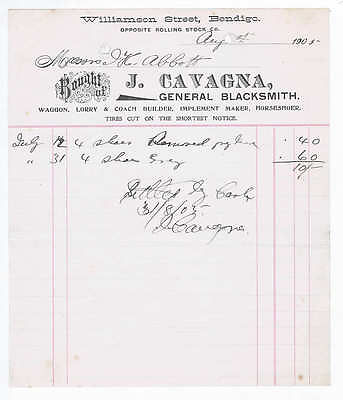 Williamson Street, Bendigo.
OPPOSITE ROLLING STOCK CO.
Aug 1905
Messrs J. K. Abbott
Bought of J. CAVAGNA,
GENERAL BLACKSMITH.
WAGGON, LORRY & COACH BUILDER, IMPLEMENT MAKER, HORSESHOER.
TIRES CUT ON THE SHORTEST NOTICE.
July 12 4 shoes Removed . 4 0
" 31 4 shoes Grey . 6 0
10/-
Settled by Cash
31/8/05.
J Cavagna